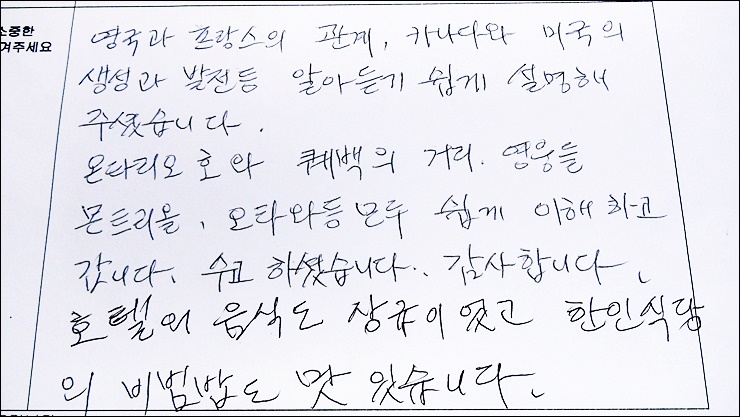 소중한
겨주세요
영국과 프랑스의 관계, 카나다와 미국의
생성과 발전등 알아듣기 쉽게 설명해
주셨습니다.
온타리오 호와 퀘백의 거리. 영웅들
몬트리올, 오타와등 모두 쉽게 이해하고
갑니다. 수고 하셨습니다.. 감사합니다.
호텔의 음식도 장급이였고 한인식당
의 비빔밥도 맛 있습니다.